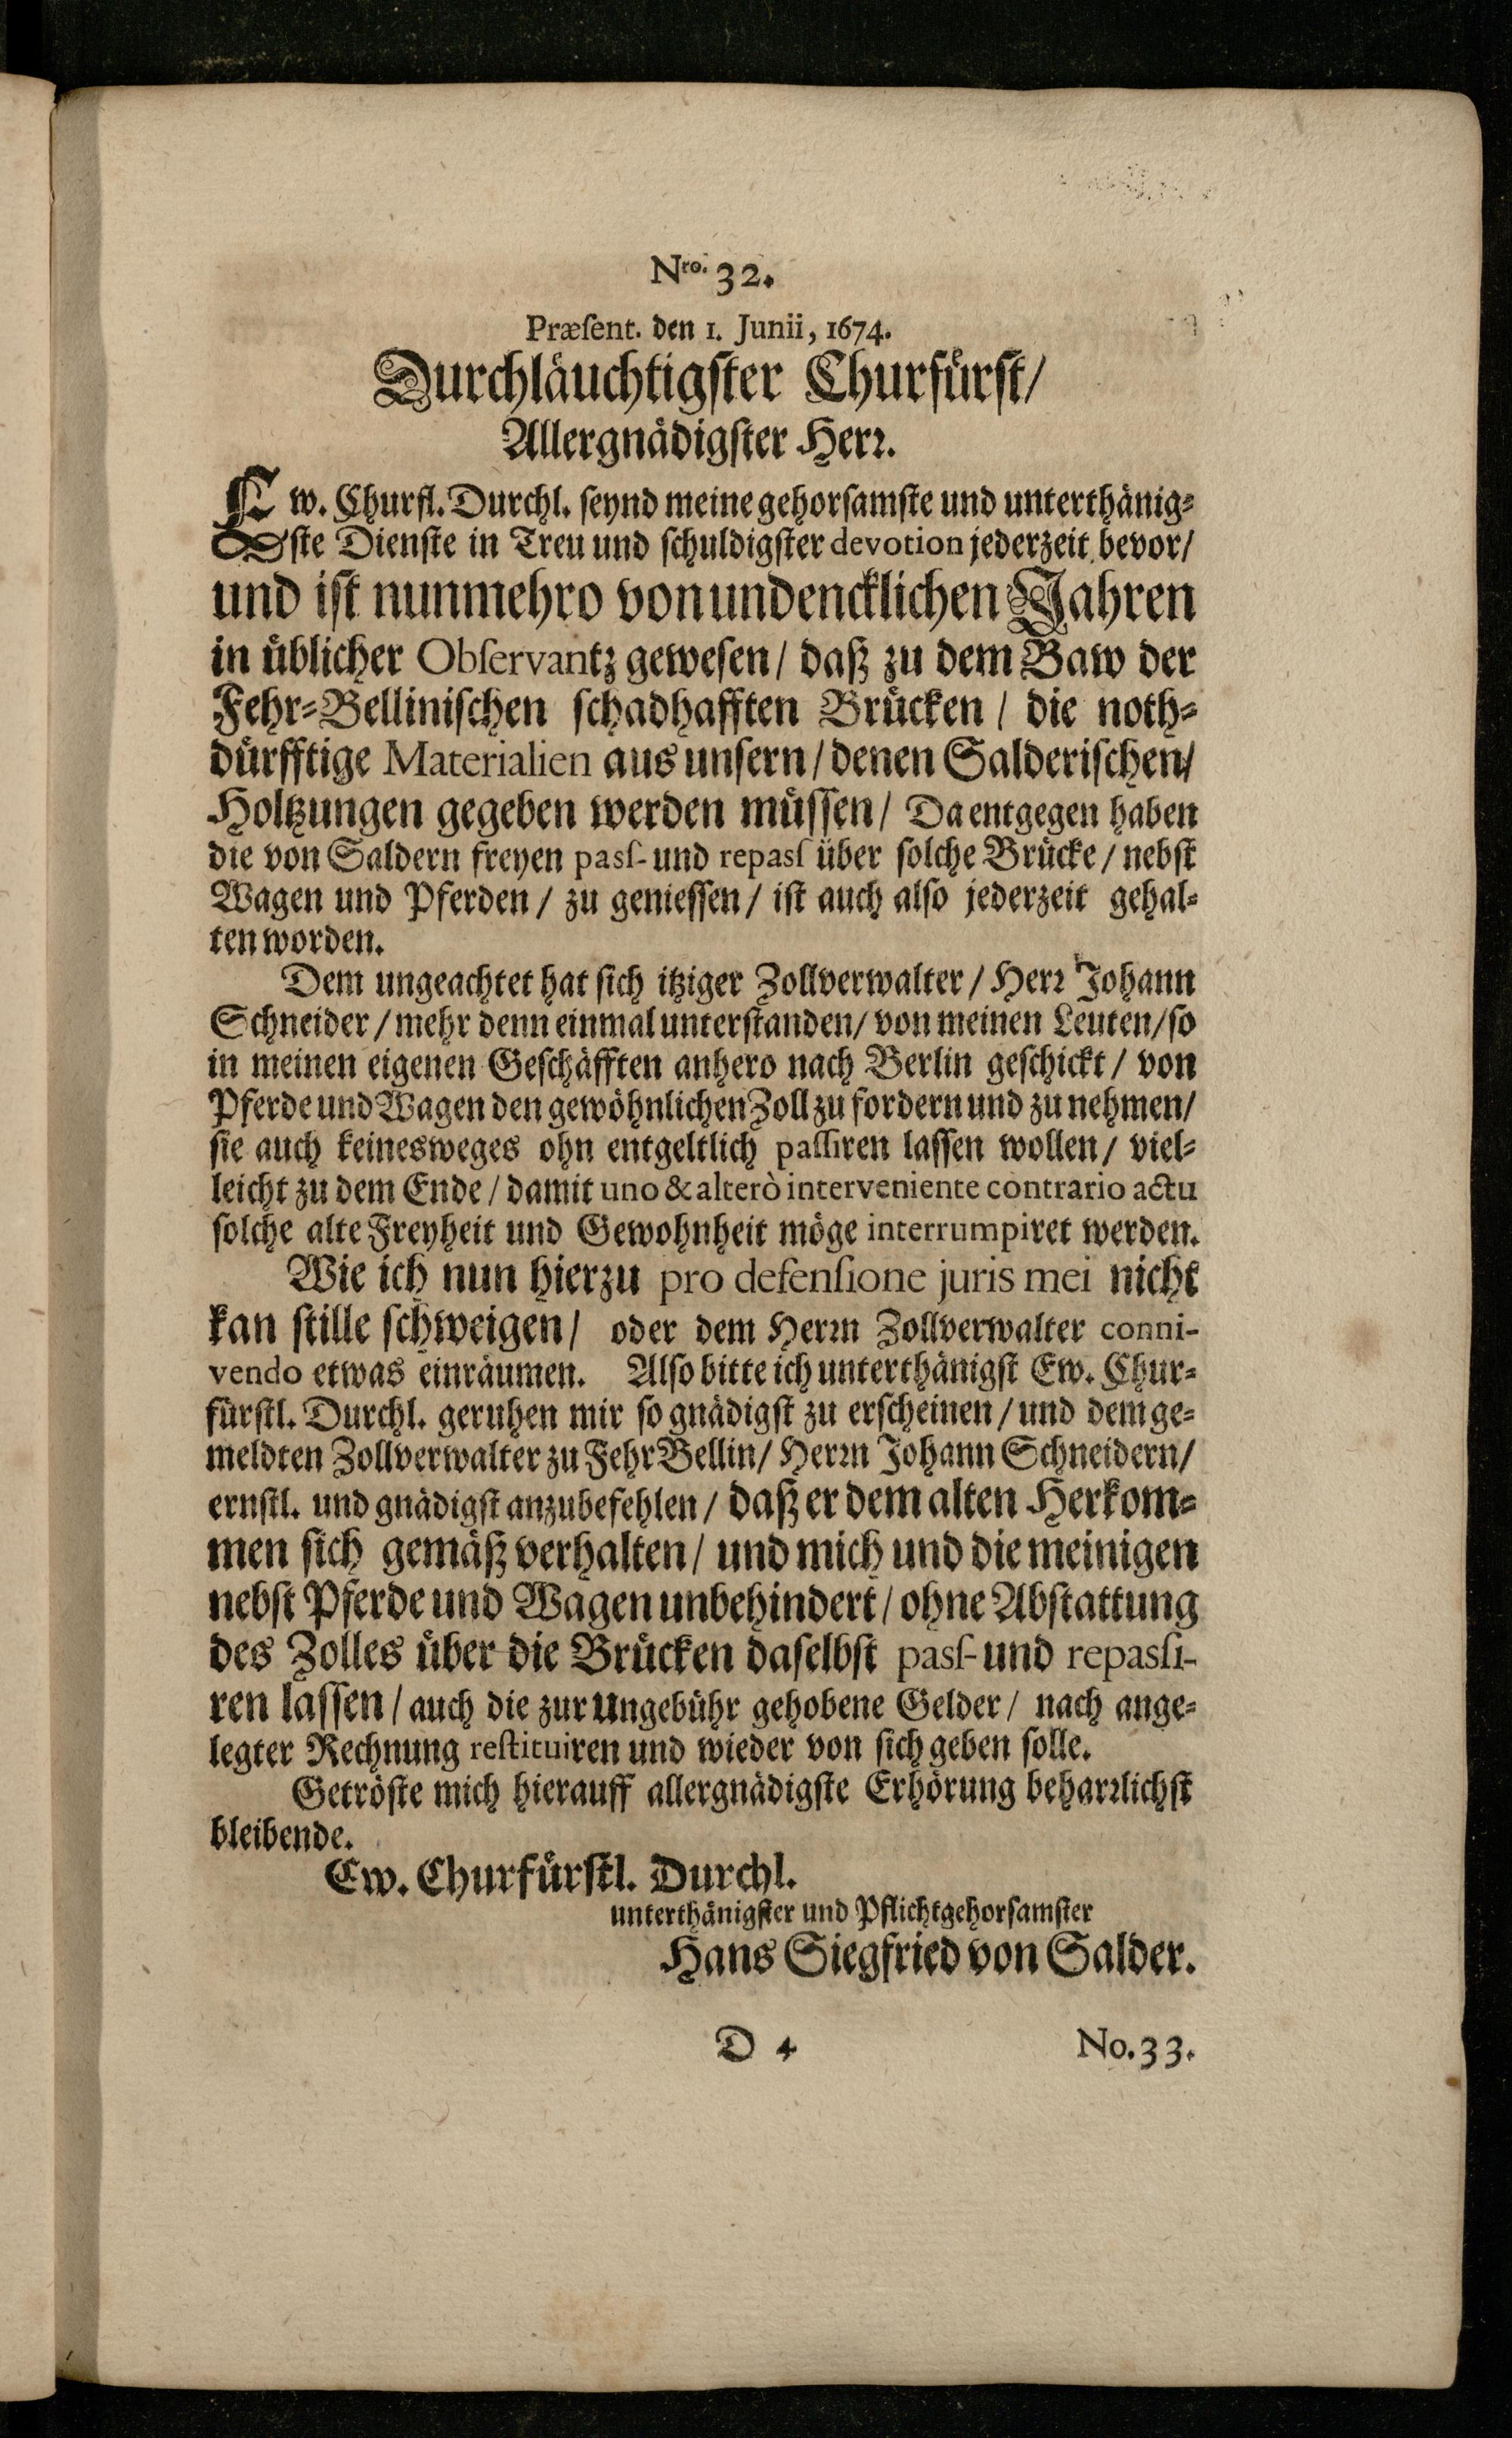 Nro. 32.
Præſent. den 1. Junii, 1674.
Durchläuchtigſter Churfürſt/
Allergnädigſter Herꝛ.
Ew. Churfl. Durchl. ſeynd meine gehorſamſte und unterthänig-
ſte Dienſte in Treu und ſchuldigſter devotion jederzeit bevor/
und iſt nunmehro von undencklichen Jahren
in üblicher Obſervantz geweſen/ daß zu dem Baw der
Fehr-Belliniſchen ſchadhafften Brücken / die noth-
dürfftige Materialien aus unſern/ denen Salderiſchen/
Holtzungen gegeben werden müſſen/ Da entgegen haben
die von Saldern freyen paſſ- und repaſſ über ſolche Brücke/ nebſt
Wagen und Pferden / zu genieſſen / iſt auch alſo jederzeit gehal-
ten worden.
Dem ungeachtet hat ſich itziger Zollverwalter / Herꝛ Johann
Schneider / mehr denn einmal unterſtanden/ von meinen Leuten/ ſo
in meinen eigenen Geſchäfften anhero nach Berlin geſchickt / von
Pferde und Wagen den gewöhnlichen Zoll zu fordern und zu nehmen/
ſie auch keinesweges ohn entgeltlich paſſiren laſſen wollen / viel-
leicht zu dem Ende / damit uno & alterò interveniente contrario actu
ſolche alte Freyheit und Gewohnheit möge interrumpiret werden.
Wie ich nun hierzu pro defenſione juris mei nicht
kan ſtille ſchweigen/ oder dem Herꝛn Zollverwalter conni-
vendo etwas einräumen. Alſo bitte ich unterthänigſt Ew. Chur-
fürſtl. Durchl. geruhen mir ſo gnädigſt zu erſcheinen / und dem ge-
meldten Zollverwalter zu Fehr Bellin/ Herꝛn Johann Schneidern/
ernſtl. und gnädigſt anzubefehlen / daß er dem alten Herkom-
men ſich gemäß verhalten/ und mich und die meinigen
nebſt Pferde und Wagen unbehindert/ ohne Abſtattung
des Zolles über die Brücken daſelbſt paſſ- und repaſſi-
ren laſſen / auch die zur Ungebühr gehobene Gelder / nach ange-
legter Rechnung reſtituiren und wieder von ſich geben ſolle.
Getröſte mich hierauff allergnädigſte Erhörung beharꝛlichſt
bleibende.
Ew. Churfürſtl. Durchl.
unterthänigſter und Pflichtgehorſamſter
Hans Siegfried von Salder.
D 4 No. 33.